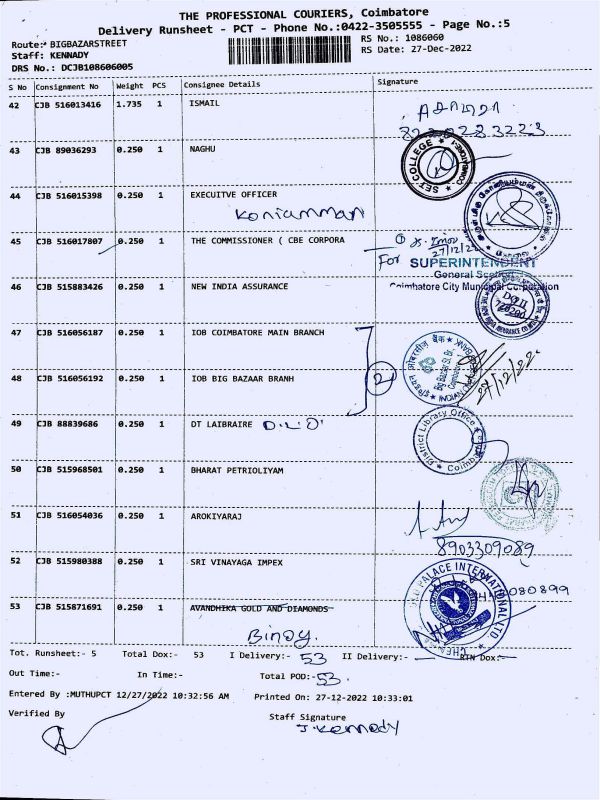 THE PROFESSIONAL COURIERS, Coimbatore
Delivery Runsheet - PCT - Phone No.:0422-3505555 - Page No.:5
Route:* BIGBAZARSTREET
Staff: KENNADY
DRS No.: DCJB108606005
RS No.: 1086060
RS Date: 27-Dec-2022
S No Consignment No Weight PCS Consignee Details Signature
42 CJB 516013416 1.735 1 ISMAIL
43 CJB 89036293 0.250 1 NAGHU
SET COLLEGE
44 CJB 516015398 0.250 1 EXECUITVE OFFICER
Koniamman
45 CJB 516017807 0.250 1 THE COMMISSIONER ( CBE CORPORA
27/12/22
For SUPERINTENDENT
General Section
Coimbatore City Municipal Corporation
46 CJB 515883426 0.250 1 NEW INDIA ASSURANCE
47 CJB 516056187 0.250 1 IOB COIMBATORE MAIN BRANCH
48 CJB 516056192 0.250 1 IOB BIG BAZAAR BRANH
2
इंडियन ओवरसीज़ बैंक
Big Bazaar St. Br.
Coimbatore
27/12/22
49 CJB 88839686 0.250 1 DT LAIBRAIRE D.L.O
District Library Office
Coimb
50 CJB 515968501 0.250 1 BHARAT PETRIOLIYAM
51 CJB 516054036 0.250 1 AROKIYARAJ
8903309089
52 CJB 515980388 0.250 1 SRI VINAYAGA IMPEX
PALACE INTERNATIONAL
53 CJB 515871691 0.250 1 AVANDHIKA GOLD AND DIAMONDS
Binoy.
Tot. Runsheet:- 5 Total Dox:- 53 I Delivery:- 53 II Delivery:- RTN Dox:-
Out Time:- In Time:- Total POD:- 53.
Entered By :MUTHUPCT 12/27/2022 10:32:56 AM Printed On: 27-12-2022 10:33:01
Verified By
Staff Signature
J. Kennady